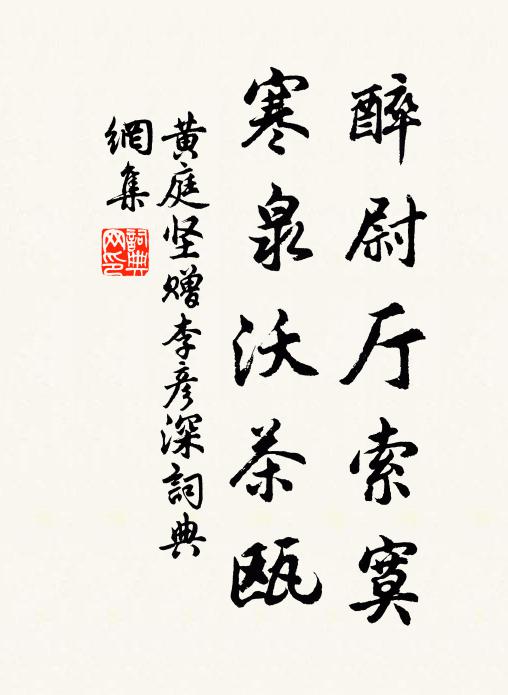 醉尉厅索寞
寒泉沃茶瓯
黄庭坚赠李彦深詞典
網集
詞典
网印